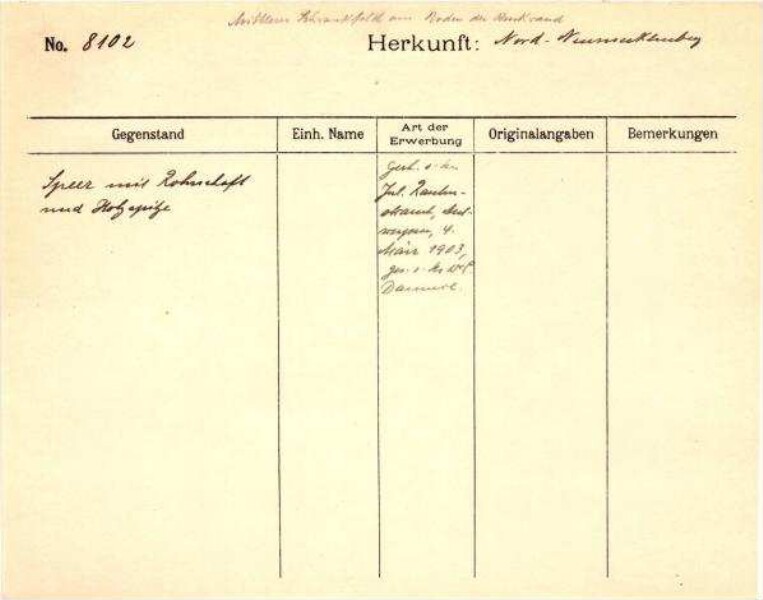 Mittleres Schrankfeld am Boden der Rückwand
No. 8102 Herkunft: Nord-Neumecklenburg
Gegenstand Einh. Name Art der Erwerbung Originalangaben Bemerkungen
Speer mit Rohrschaft
und Holzspitze
Gesch. v. Hr.
Jul.
4.
März 1903,
ges. v. Hr.